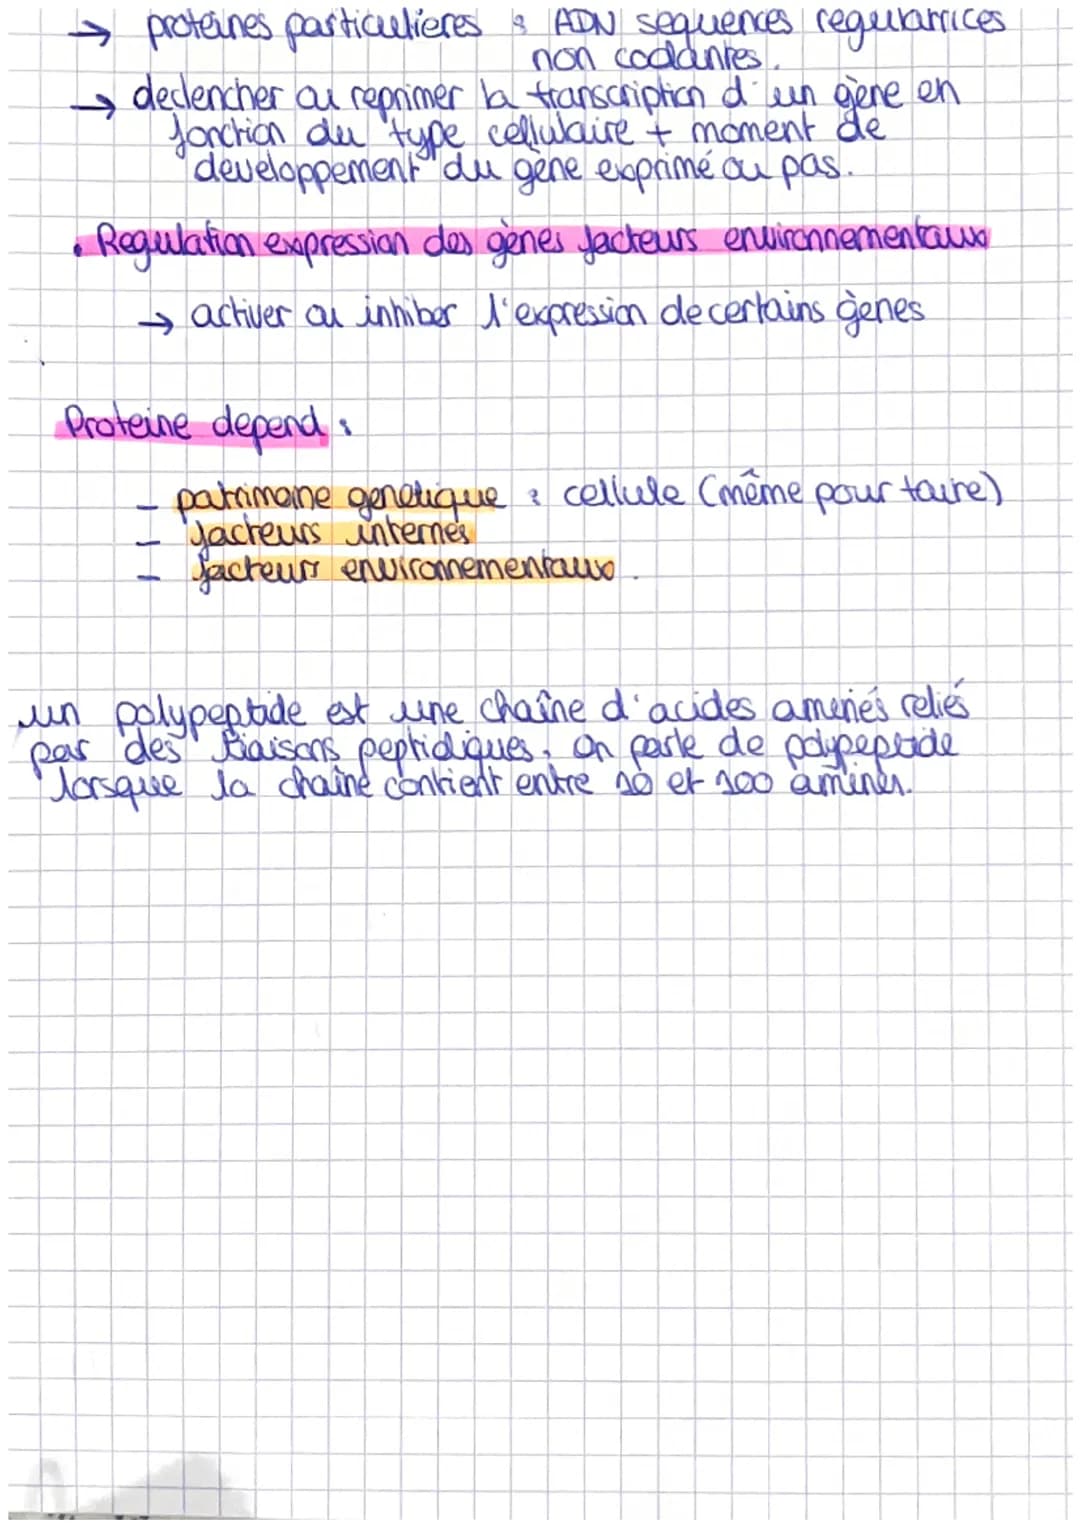 → proteines particulieres : ADN sequences regulatrices
non codantes.
→ declencher ou reprimer la transcription d'un gène en
fonction du type cellulaire + moment de
developpement du gène exprimé ou pas.
• Regulation expression des gènes facteurs environnementaux
→ activer ou inhiber l'expression de certains gènes
Proteine depend :
- patrimoine genetique : cellule (même pour toute)
- facteurs internes
- facteurs environnementaux.
un polypeptide est une chaîne d'acides aminés reliés
par des liaisons peptidiques, on parle de polypeptide
lorsque la chaîne contient entre 10 et 100 aminés.